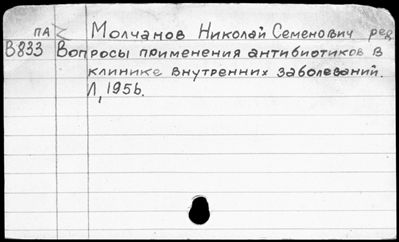 ПА Молчанов Николай Семенович ред
В833 Вопросы применения антибиотиков в
клинике внутренних заболеваний.
Л, 1956.